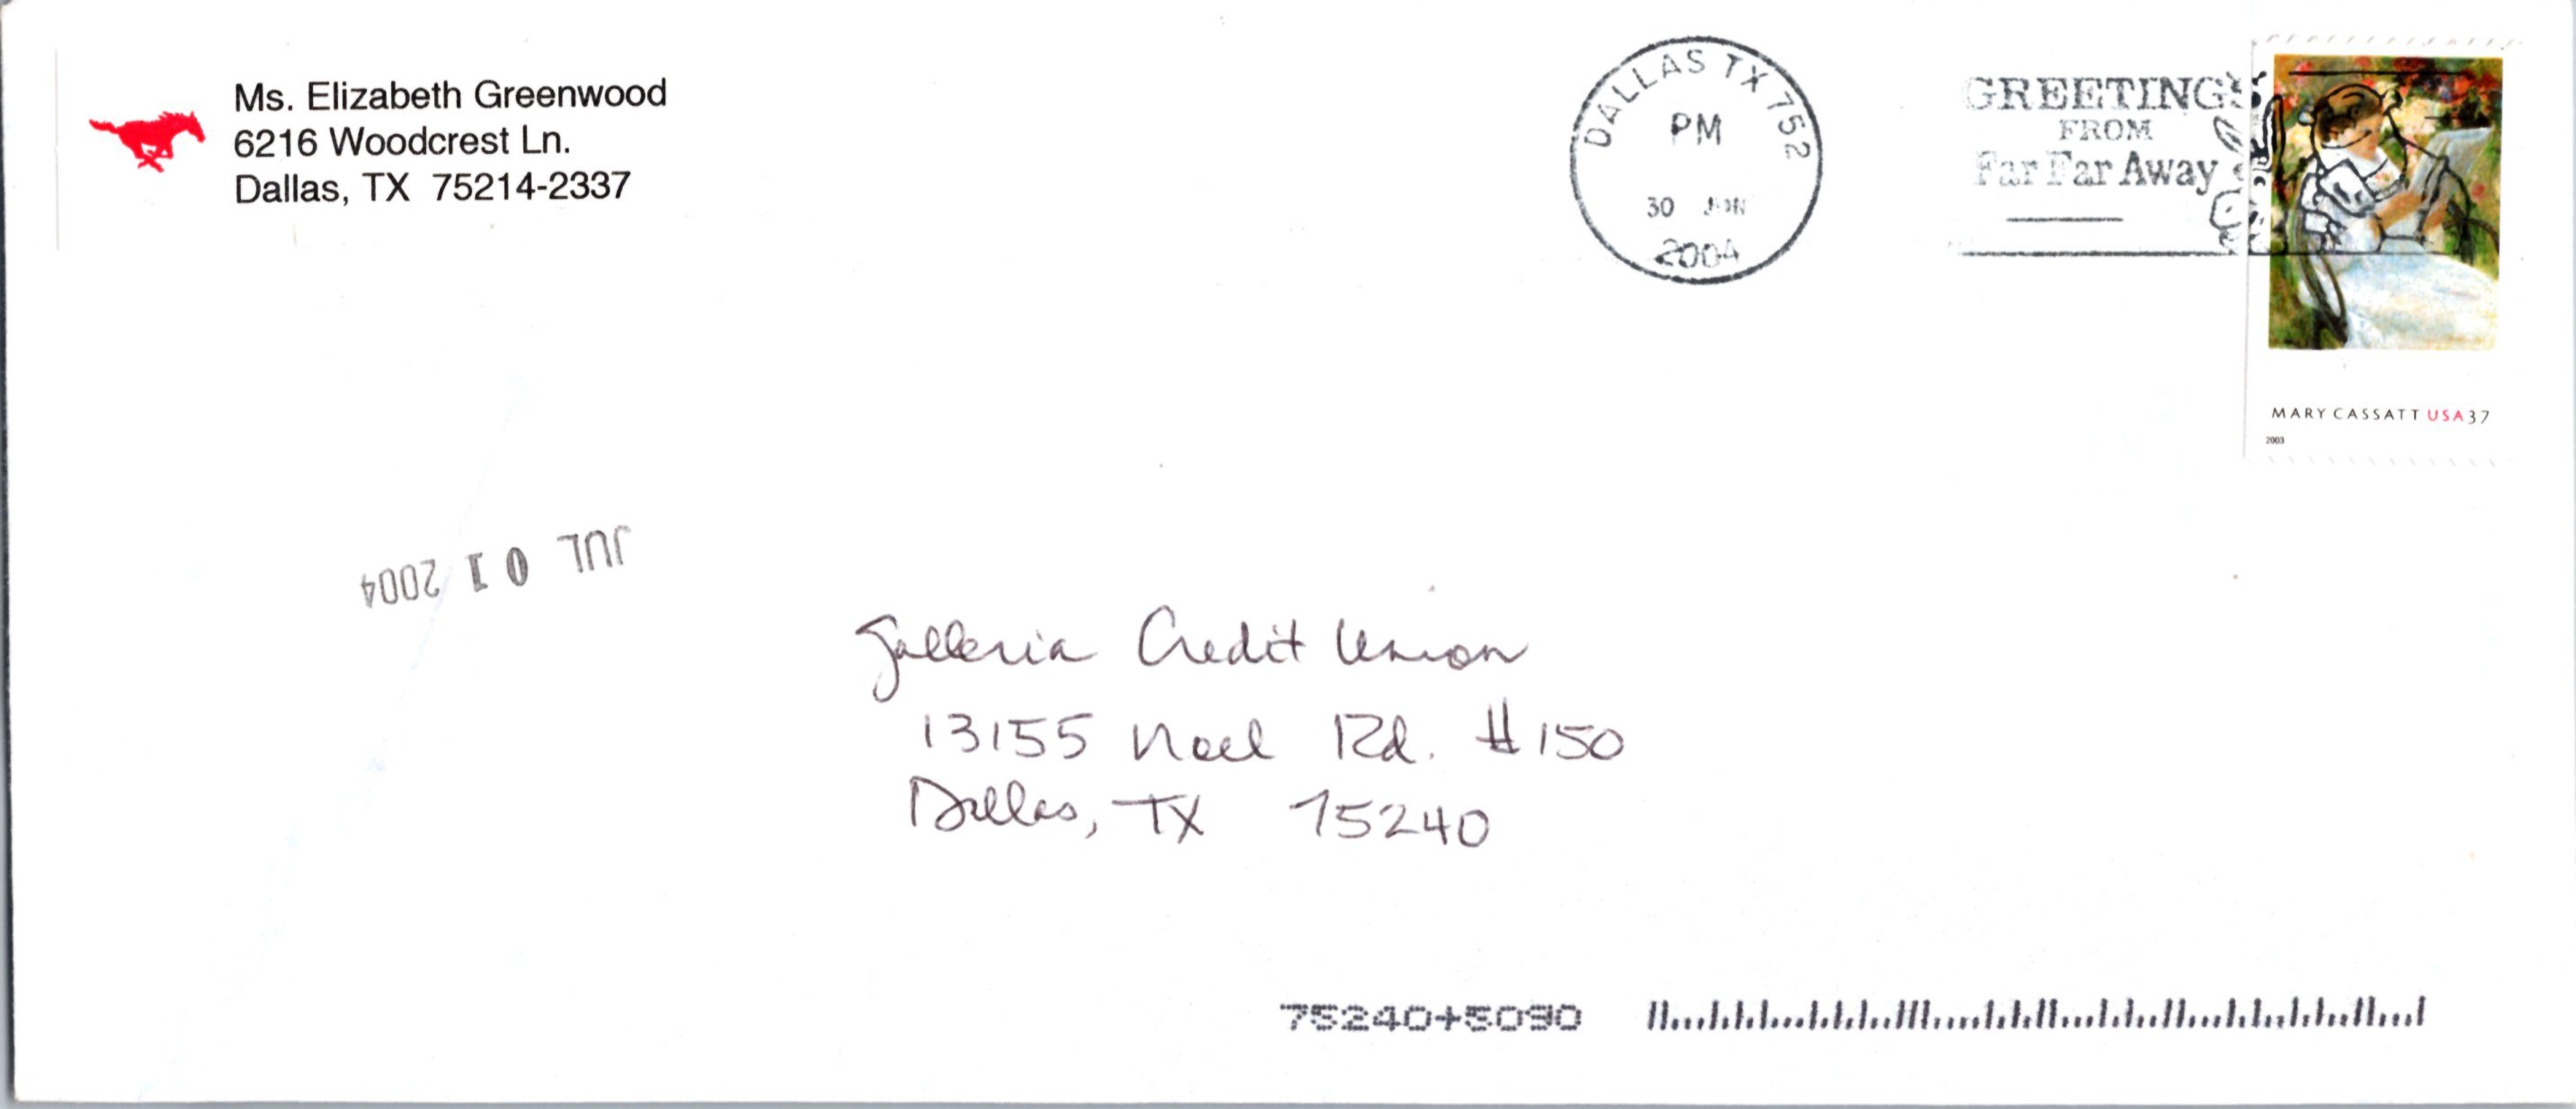 Ms. Elizabeth Greenwood
6216 Woodcrest Ln.
Dallas, TX 75214-2337
DALLAS TX 752
PM
30 JUN
2004
GREETINGS
FROM
Far Far Away
MARY CASSATT USA37
2003
JUL 01 2004
Galleria Credit Union
13155 Noel Rd. #150
Dallas, TX 75240
75240+5090